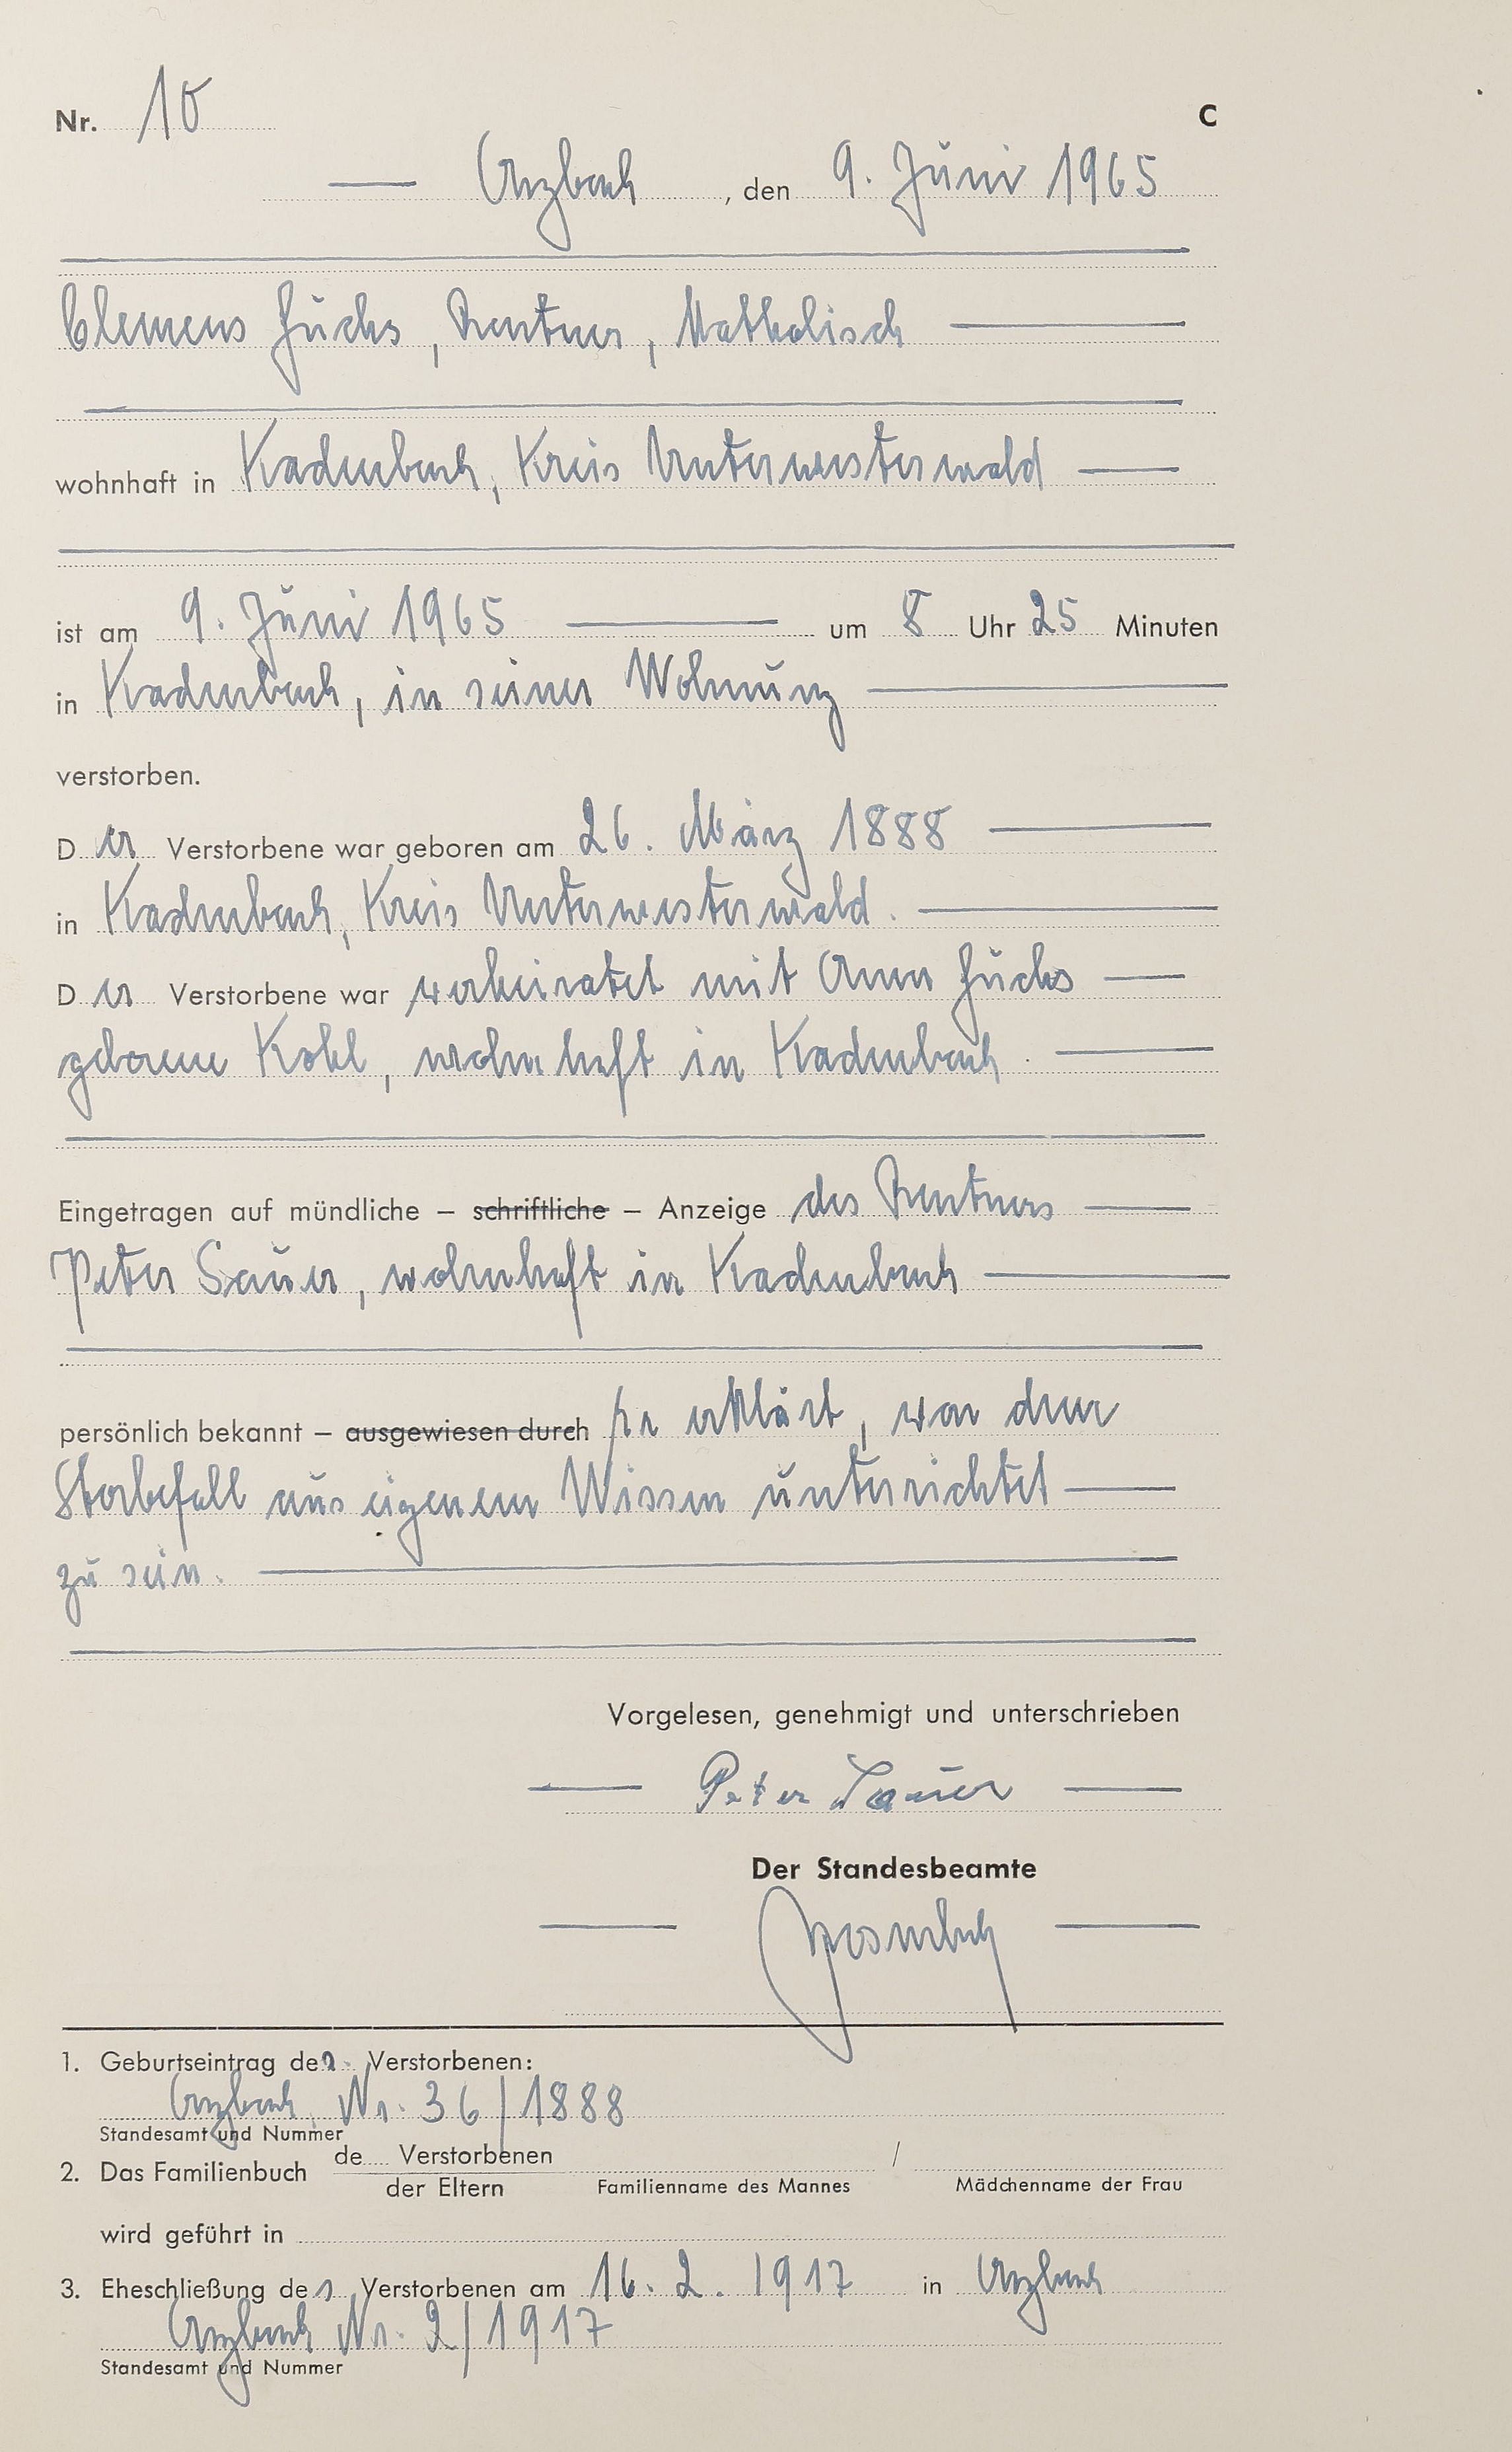 Nr. 10 C
Arzbach, den 9. Juni 1965
Clemens Fuchs, Rentner, katholisch
wohnhaft in Kadenbach, Kreis Unterwesterwald
ist am 9. Juni 1965 um 8 Uhr 25 Minuten
in Kadenbach, in seiner Wohnung
verstorben.
Der Verstorbene war geboren am 26. März 1888
in Kadenbach, Kreis Unterwesterwald.
Der Verstorbene war verheiratet mit Anna Fuchs
geborene Kohl, wohnhaft in Kadenbach.
Eingetragen auf mündliche – schriftliche – Anzeige des Rentners
Peter Sauer, wohnhaft in Kadenbach
persönlich bekannt – ausgewiesen durch er erklärt, von dem
Sterbefall aus eigenem Wissen unterrichtet
zu sein.
Vorgelesen, genehmigt und unterschrieben
Peter Sauer
Der Standesbeamte
1. Geburtseintrag des Verstorbenen:
Arzbach, Nr. 36/1888
Standesamt und Nummer
2. Das Familienbuch de.... Verstorbenen /
der Eltern Familienname des Mannes Mädchenname der Frau
wird geführt in
3. Eheschließung des Verstorbenen am 16. 2. 1917 in Arzbach
Arzbach Nr. 2/1917
Standesamt und Nummer